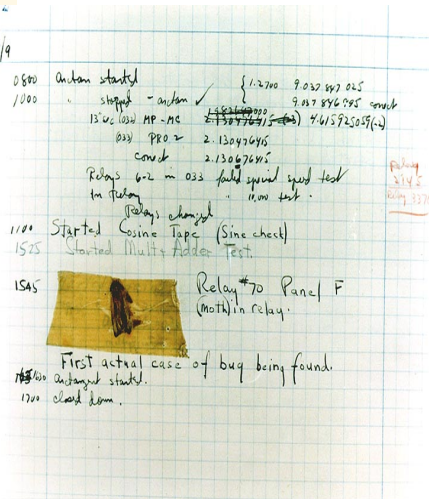 /9
0800 Antan started
1000 " stopped - antan ✓ { 1.2700 9.037 847 025
9.037 846 995 correct
13" uc (032) MP - MC 2.130476415 4.615925059(-2)
(033) PRO 2 2.130476415
correct 2.130676415
Relays 6-2 in 033 failed special speed test
in Relay " 10,000 test .
Relay
2145
Relay 337
Relays changed
1100 Started Cosine Tape (Sine check)
1525 Started Mult + Adder Test.
1545 Relay #70 Panel F
(moth) in relay.
First actual case of bug being found.
1630 Antangent started.
1700 closed down.